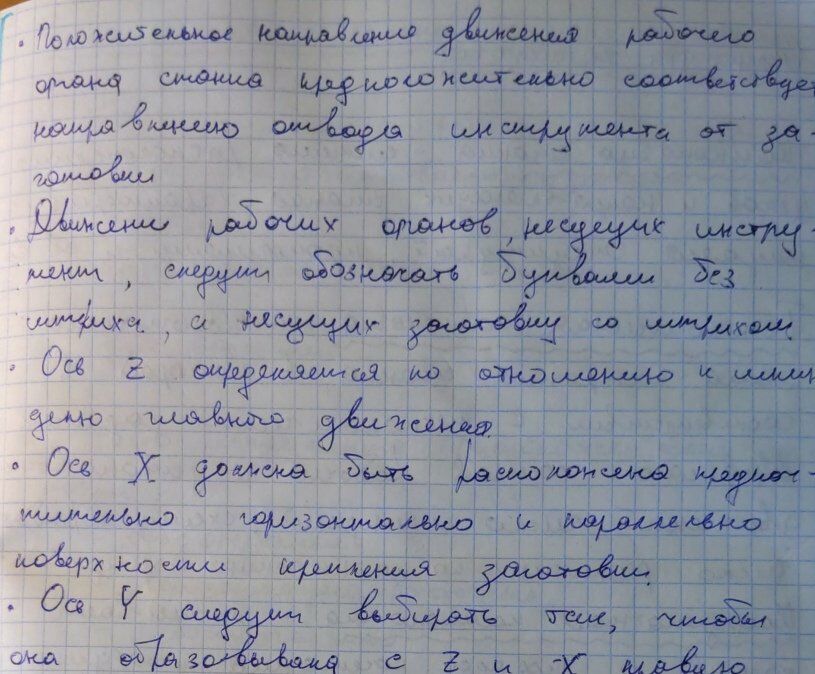 • Положительное направление движения рабочего
органа станка предположительно соответствует
направлению отвода инструмента от за-
готовки
• Движения рабочих органов, несущих инстру-
мент, следует обозначать буквами без
штриха, а несущих заготовку со штрихом.
• Ось Z определяется по отношению к шпин
делю главного движения.
• Ось X должна быть расположена предпоч-
тительно горизонтально и параллельно
поверхности крепления заготовки.
• Ось Y следует выбирать так, чтобы
она образовывала с Z и X правую